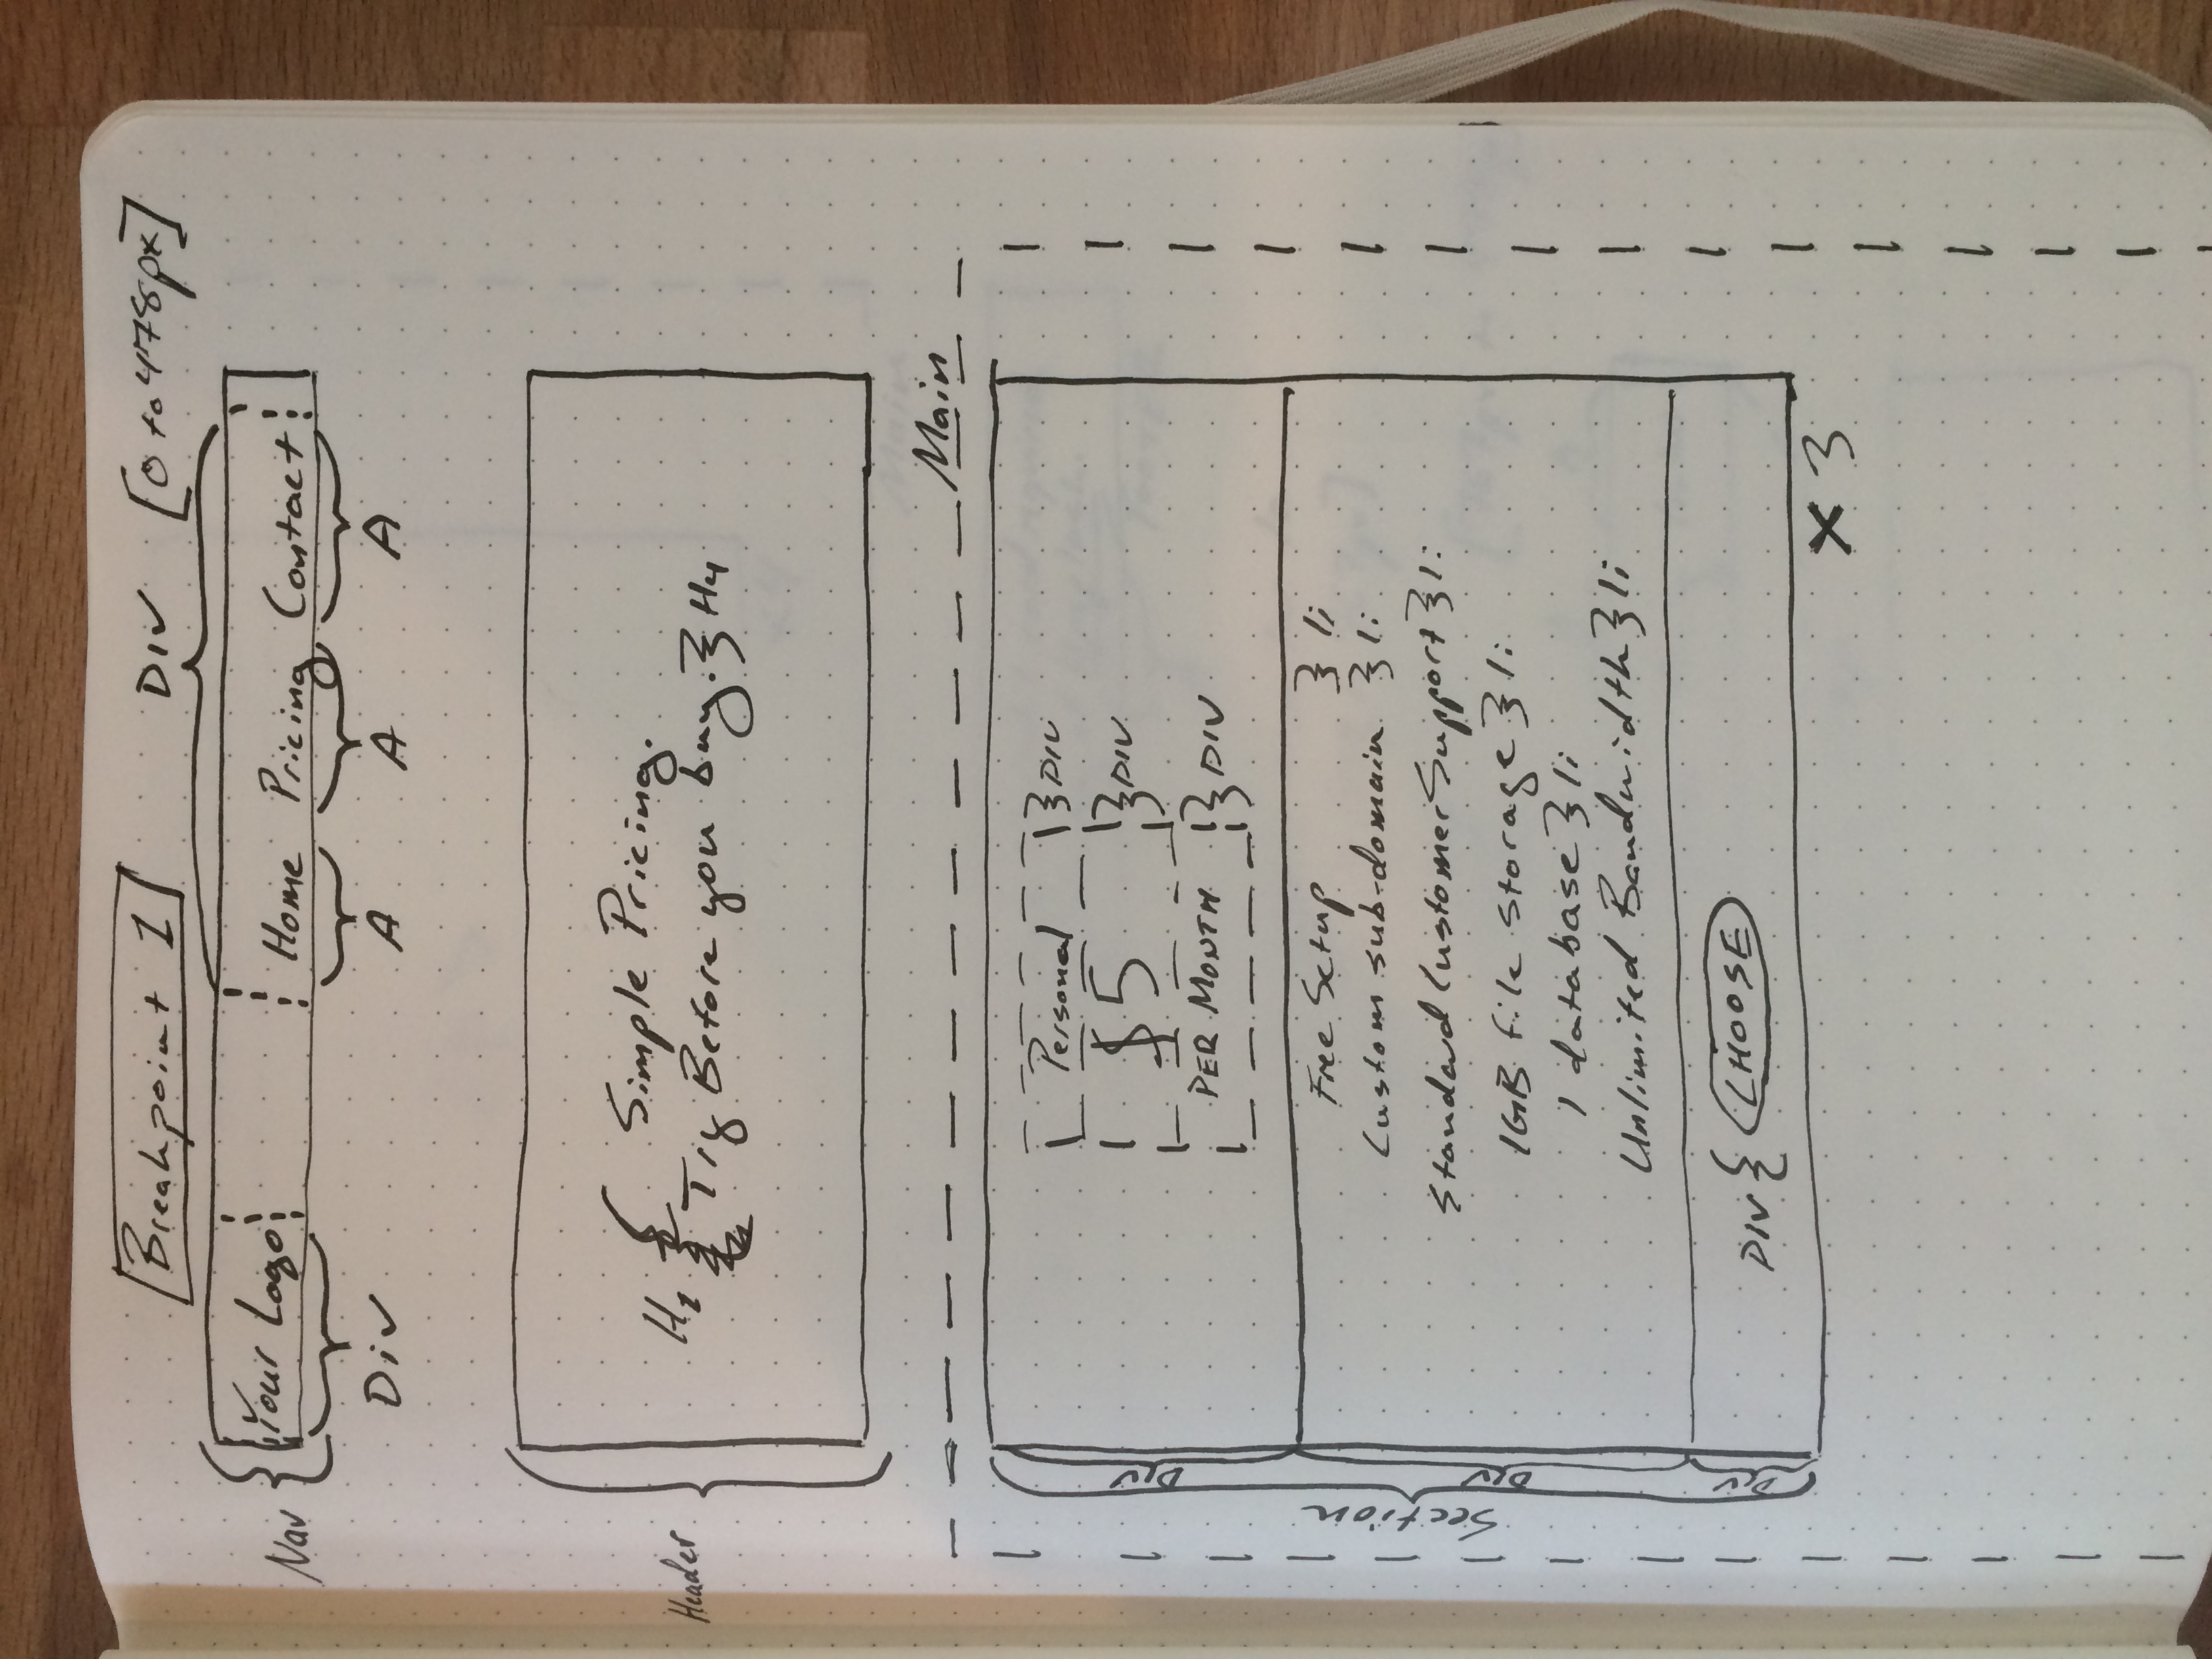 Breakpoint 1 DIV [0 to 478px]
Nav Your Logo Home Pricing Contact
Div A A A
Header
H1 Simple Pricing.
Try Before you buy. H4
Main
Section
DIV
Personal DIV
$5 DIV
PER MONTH DIV
DIV
Free Setup li
Custom sub-domain li
Standard Customer Support li
1GB file storage li
1 database li
Unlimited Bandwidth li
DIV
DIV CHOOSE
x 3